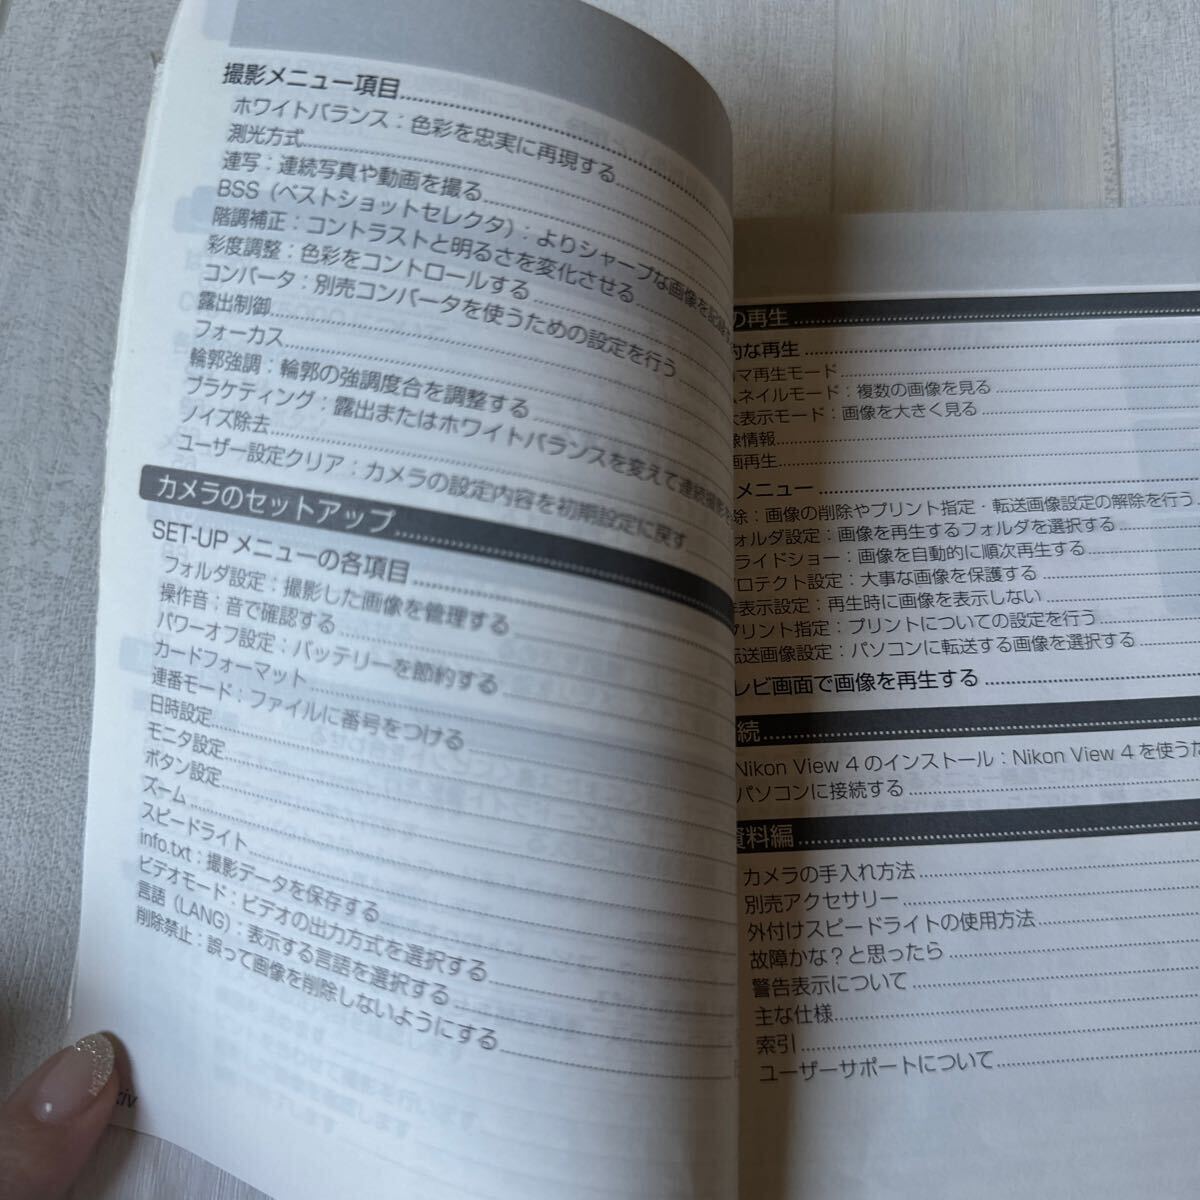 撮影メニュー項目
ホワイトバランス：色彩を忠実に再現する
測光方式
連写：連続写真や動画を撮る
BSS（ベストショットセレクタ）：よりシャープな画像を記録
階調補正：コントラストと明るさを変化させる
彩度調整：色彩をコントロールする
コンバータ：別売コンバータを使うための設定を行う
露出制御
フォーカス
輪郭強調：輪郭の強調度合を調整する
ブラケティング：露出またはホワイトバランスを変えて連続撮影を
ノイズ除去
ユーザー設定クリア：カメラの設定内容を初期設定に戻す
カメラのセットアップ
SET-UP メニューの各項目
フォルダ設定：撮影した画像を管理する
操作音：音で確認する
パワーオフ設定：バッテリーを節約する
カードフォーマット
連番モード：ファイルに番号をつける
日時設定
モニタ設定
ボタン設定
ズーム
スピードライト
info.txt：撮影データを保存する
ビデオモード：ビデオの出力方式を選択する
言語（LANG）：表示する言語を選択する
削除禁止：誤って画像を削除しないようにする
xiv
の再生
的な再生
マ再生モード
ネイルモード：複数の画像を見る
大表示モード：画像を大きく見る
像情報
画再生
メニュー
除：画像の削除やプリント指定・転送画像設定の解除を行う
ォルダ設定：画像を再生するフォルダを選択する
ライドショー：画像を自動的に順次再生する
プロテクト設定：大事な画像を保護する
非表示設定：再生時に画像を表示しない
プリント指定：プリントについての設定を行う
転送画像設定：パソコンに転送する画像を選択する
レビ画面で画像を再生する
続
Nikon View 4 のインストール：Nikon View 4 を使うた
パソコンに接続する
資料編
カメラの手入れ方法
別売アクセサリー
外付けスピードライトの使用方法
故障かな？と思ったら
警告表示について
主な仕様
索引
ユーザーサポートについて